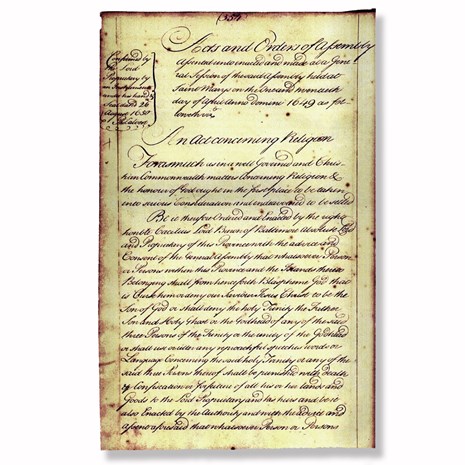 (354)
Confirmed by
the Lord
Proprietary by
an Instrument
under his hand &
Seale dated 26
August 1650
Acts and Orders of Assembly
Assented unto enacted and made at a Gene
ral Session of the said Assembly held at
Saint Maryes on the one and twentieth
day of April Anno Domini 1649 as fol
loweth viz
An Act concerning Religion
Forasmuch as in a well Governed and Chris
tian Commonwealth matters Concerning Religion &
the honour of God ought in the first place to be taken
into serious Consideration and endeavored to be settled
Be it therefore Ordered and Enacted by the right
honble Caecilius Lord Baron of Baltimore absolute Lord
and Proprietary of this Province with the advice and
Consent of the General Assembly that whatsoever Person
or Persons within this Province and the Islands thereto
Belonging shall from henceforth Blaspheme God that
is Curse him or deny our Saviour Jesus Christ to be the
Son of God or shall deny the holy Trinity the Father
Son and Holy Ghost or the Godhead of any of the said
three Persons of the Trinity or the unity of the Godhead
or shall use or utter any reproachful speeches words or
Language Concerning the said holy Trinity or any of the
said three Persons thereof shall be punished with death
& Confiscation or forfeiture of all his or her lands and
Goods to the Lord Proprietary and his heirs and be it
also Enacted by the Authority and with the advice and
assent aforesaid that whatsoever Person or Persons